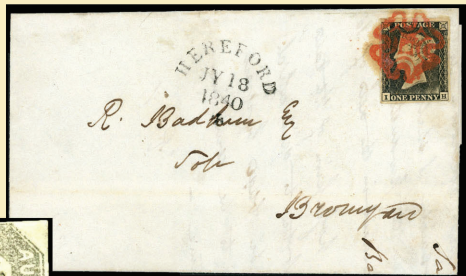 HEREFORD
JY 18
1840
POSTAGE
I ONE PENNY H
R. Badham Esq
Bromyard